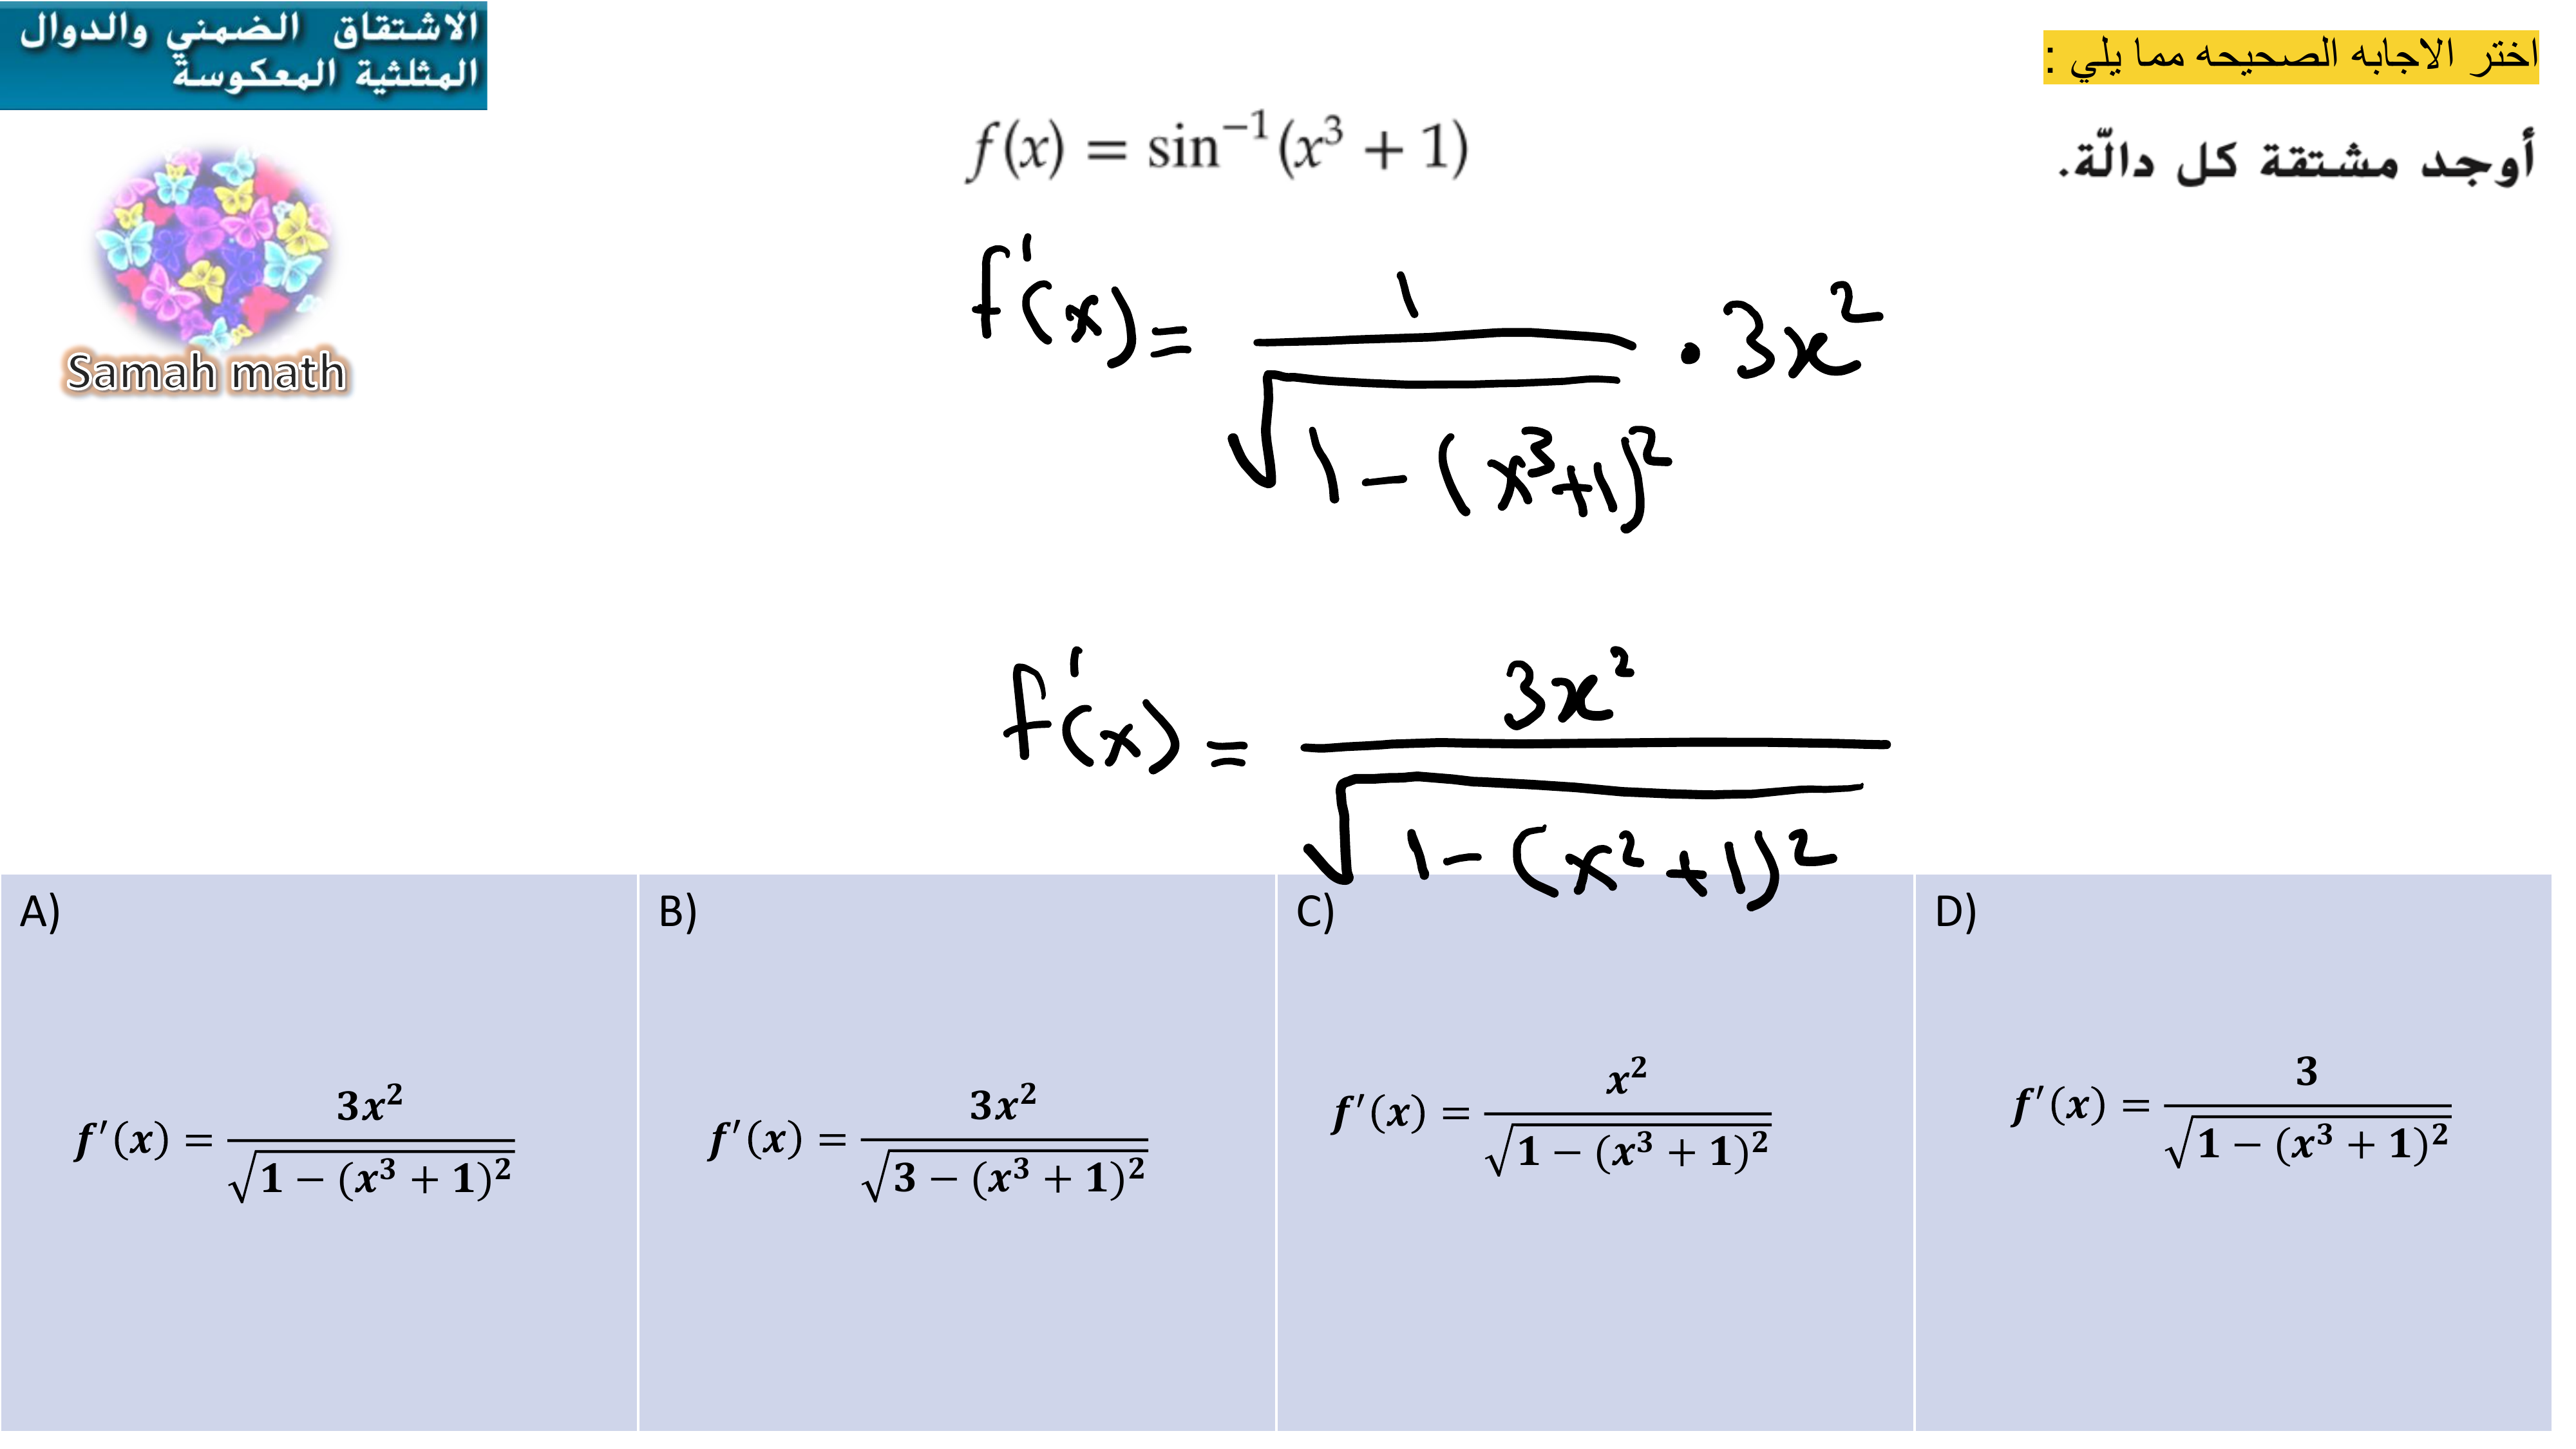 الاشتقاق الضمني والدوال
المثلثية المعكوسة
اختر الاجابه الصحيحه مما يلي :
أوجد مشتقة كل دالّة.
f(x) = sin⁻¹(x³ + 1)
Samah math
f'(x) = 1/√(1 - (x³+1)²) · 3x²
f'(x) = 3x²/√(1 - (x²+1)²)
A)
f′(x) = 3x²/√(1 − (x³ + 1)²)
B)
f′(x) = 3x²/√(3 − (x³ + 1)²)
C)
f′(x) = x²/√(1 − (x³ + 1)²)
D)
f′(x) = 3/√(1 − (x³ + 1)²)